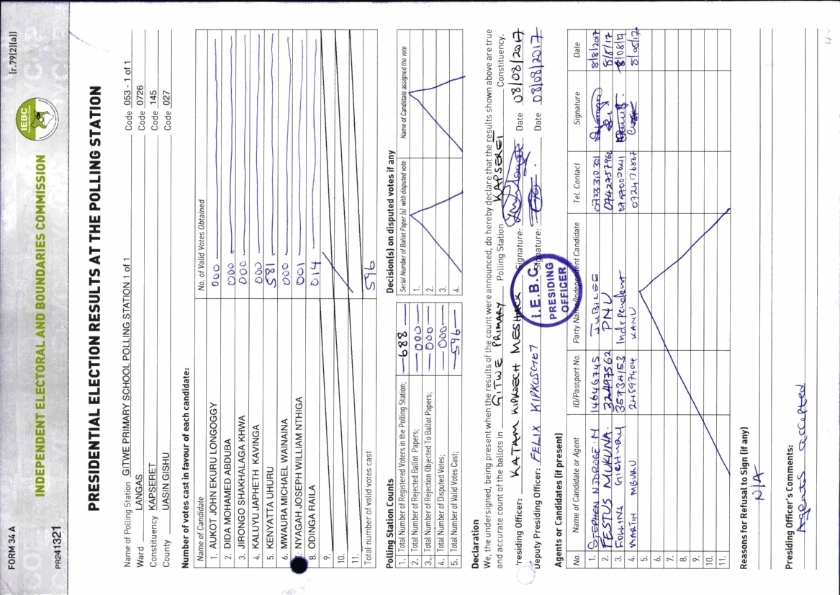 FORM 34 A
(r.79(2)(a))
PR241321
INDEPENDENT ELECTORAL AND BOUNDARIES COMMISSION
IEBC
PRESIDENTIAL ELECTION RESULTS AT THE POLLING STATION
Name of Polling Station GITWE PRIIMARY SCHOOL POLLING STATION 1 of 1 Code 053 - 1 of 1
Ward LANGAS Code 0726
Constituency KAPSERET Code 145
County UASIN GISHU Code 027
Number of votes cast in favour of each candidate:
Name of Candidate No. of Valid Votes Obtained
1. AUKOT JOHN EKURU LONGOGGY 000
2. DIDA MOHAMED ABDUBA 000
3. JIRONGO SHAKHALAGA KHWA 000
4. KALUYU JAPHETH KAVINGA 000
5. KENYATTA UHURU 581
6. MWAURA MICHAEL WAINAINA 000
NYAGAH JOSEPH WILLIAM NTHIGA 001
8. ODINGA RAILA 014
9.
10.
11.
Total number of valid votes cast 596
Polling Station Counts
1. Total Number of Registered Voters in the Polling Station; 688
2. Total Number of Rejected Ballot Papers; 000
3. Total Number of Rejection Objected To Ballot Papers; 000
4. Total Number of Disputed Votes; 000
5. Total Number of Valid Votes Cast; 596
Decision(s) on disputed votes if any
Serial Number of Ballot Paper (s) with disputed vote Name of Candidate assigned the vote
1.
2.
3.
4.
Declaration
We, the undersigned, being present when the results of the count were announced, do hereby declare that the results shown above are true
and accurate count of the ballots in GITWE PRIMARY Polling Station KAPSERET Constituency.
Presiding Officer: KATAM KIPKOECH MESHACK Signature: Date 08/08/2017
Deputy Presiding Officer: FELIX KIPKOSGEI Signature: Date 08/08/2017
I.E.B.C
PRESIDING
OFFICER
Agents or Candidates (if present)
No. Name of Candidate or Agent ID/Passport No. Party Name/Independent Candidate Tel. Contact Signature Date
1. STEPHEN NJOROGE M 14646745 JUBILEE 8/8/2017
2. FESTUS MUKUNA 32497562 PNU 8/8/17
3. Independent
4. KANU
5.
6.
7.
8.
9.
10.
11.
Reasons for Refusal to Sign (if any)
N/A
Presiding Officer's Comments:
Agents accepted